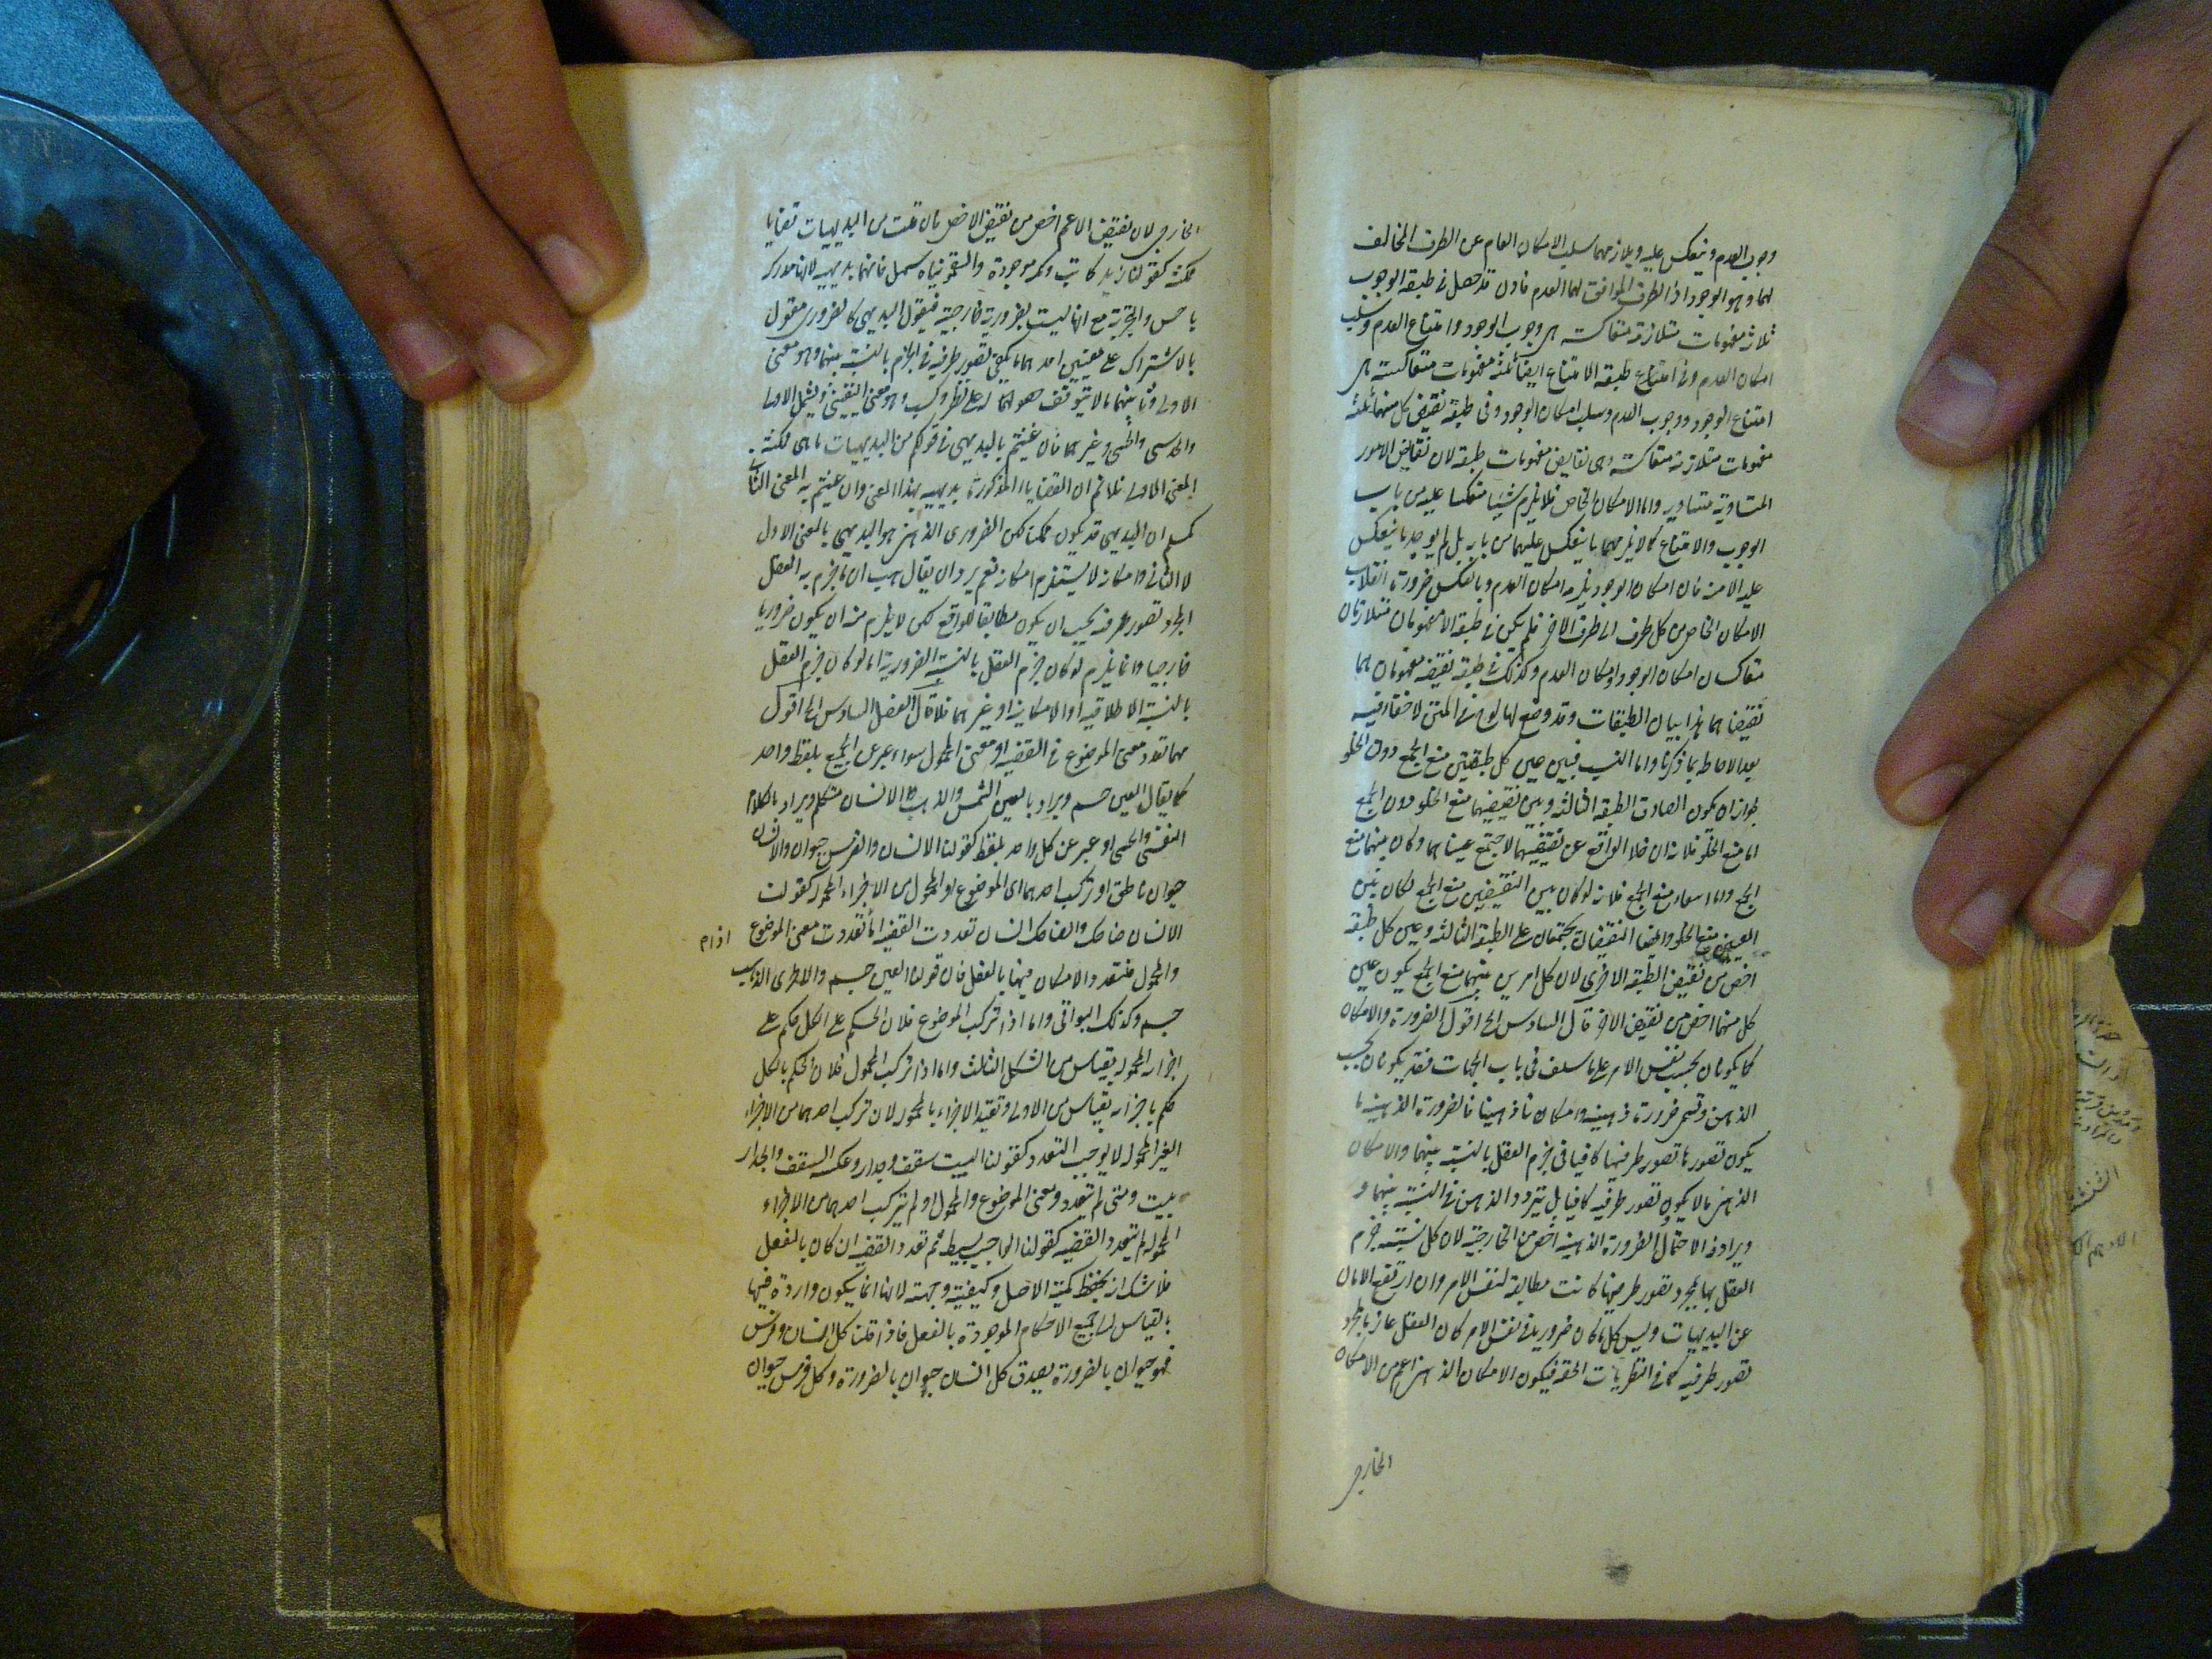 وجوب العدم وينعكس عليه ويلازمهما سلب الامكان العام عن الطرف المخالف
لهما وهو الوجود اذ الطرف الموافق لهما العدم فاذن قد حصل فى طبقة الوجوب
ثلاث مفهومات متلازمة متعاكسة هى وجوب الوجود وامتناع العدم وسلب
امكان العدم وفى امتناع طبقة الامتناع ايضا ثلثة مفهومات متعاكسة هى
امتناع الوجود ووجوب العدم وسلب امكان الوجود وفى طبقة نقيض كل منهما ثلثة
مفهومات متلازمة متعاكسة وهى نقايض مفهومات طبقة لان نقايض الامور
المتساوية متساوية واما الامكان الخاص فلا يلزم شيئا منعكسا عليه من باب
الوجوب والامتناع كما لا يلزمهما ما ينعكس عليهما من بابه بل لم يوجد ما ينعكس
عليه الا منه فان امكان الوجود يلزمه امكان العدم وبالعكس ضرورة انقلاب
الامكان الخاص من كل طرف الى طرف الاخر فلم يكن فى طبقة الا مفهومان متلازمان
متعاكسان امكان الوجود وامكان العدم وكذلك فى طبقة نقيضه مفهومان هما
نقيضاهما هذا بيان الطبقات وقد وضع لها لوح فى المتن لا خفاء فيه
بعد الاحاطة بما ذكرنا واما النسب فبين عين كل طبقتين منع الجمع دون الخلو
لجواز ان يكون الصادق الطبقة الثالثة وبين نقيضيهما منع الخلو دون الجمع
اما منع الخلو فلانه ان خلا الواقع عن نقيضيهما لاجتمع عيناهما وكان بينهما منع
الجمع واما منع الجمع فلانه لو كان بين النقيضين منع الجمع لكان بين
العينين منع الخلو وايضا النقيضان يجتمعان على الطبقة الثالثة وعين كل طبقة
اخص من نقيض الطبقة الاخرى لان كل امرين بينهما منع الجمع يكون عين
كل منهما اخص من نقيض الاخر قال السادس الخ اقول الضرورة والامكان
كما يكونان بحسب نفس الامر على ما سلف فى باب الجهات فقد يكونان بحسب
الذهن وتسمى ضرورة ذهنية وامكانا ذهنيا فالضرورة الذهنية ما
يكون تصورها تصور طرفيها كافيا فى جزم العقل بالنسبة بينهما والامكان
الذهنى ما لا يكون تصور طرفيه كافيا بل يتردد الذهن فى النسبة بينهما و
يراد فى الاحتمال والضرورة الذهنية اخص من الخارجية لان كل نسبة جزم
العقل بها بمجرد تصور طرفيها كانت مطابقة لنفس الامر وان ارتفع الامان
عن البديهيات وليس كل ما كان ضروريا فى نفس الامر كان العقل عازما بمجرد
تصور طرفيه كما فى النظريات الحقة فيكون الامكان الذهنى اعم من الامكان
الخارجى
الخارجى لان نقيض الاعم اخص من نقيض الاخص فان قلت من البديهيات قضايا
ممكنة كقولنا زيد كاتب وكم موجودة والسقمونيا مسهل فانهما بديهية لانها مدركة
بالحس والتجربة مع انها ليست بضرورية خارجية فيقول البديهى كالضرورى مقول
بالاشتراك على معنيين احدهما ما يكفى تصور طرفيه فى الجزم بالنسبة بينهما وهو معنى
الاولى وثانيهما ما لا يتوقف حصوله على نظر وكسب وهو معنى اليقينى ويشمل الاولى
والحدسى والحسى وغيرهما فان عنيتم بالبديهى فى قولكم من البديهيات ما هى ممكنة
المعنى الاول فلا نم ان القضايا المذكورة بديهية بهذا المعنى وان عنيتم به المعنى الثانى
نسلم ان البديهى قد يكون ممكنا لكن الضرورى الذهنى هو البديهى بالمعنى الاول
لا الثانى وامكانه لا يستلزم امكانه نعم يرد ان يقال هب ان ما جزم به العقل
بمجرد تصور طرفيه يجب ان يكون مطابقا للواقع لكن لا يلزم منه ان يكون ضروريا
خارجيا وانما يلزم لو كان جزم العقل بالنسبة الضرورية اما لو كان جزم العقل
بالنسبة الاطلاقية او الامكانية او غيرهما فلا قال الفصل السادس الخ اقول
مهما تعدد معنى الموضوع فى القضية او معنى المحمول سواء عبر عن الجميع بلفظ واحد
كما يقال العين جسم ويراد بالعين الشمس والذهب والانسان متكلم ويراد بالكلام
النفسى والحسى او عبر عن كل واحد بلفظ كقولنا الانسان والفرس حيوان والانسان
حيوان ناطق او تركب احدهما اى الموضوع او المحمول من الاجزاء المحمولة كقولنا
الانسان ضاحك والضاحك انسان تعددت القضية اما اذا تعددت معنى الموضوع
اذام
والمحمول فتعدد والامكان فيها بالفعل فان قولنا العين جسم والاخرى الذهب
جسم وكذلك البواقى واما اذا تركب الموضوع فلان الحكم على الكل حكم على
اجزائه المحمولة بقياس من الشكل الثالث واما اذا تركب المحمول فلان الحكم بالكل
حكم باجزائه بقياس من الاول وتقييد الاجزاء بالمحمولة لان تركب احدهما من الاجزاء
الغير المحمولة لا يوجب التعدد كقولنا البيت سقف وجدار وعكسه السقف والجدار
بيت ومتى لم يتعدد معنى الموضوع والمحمول ولم يتركب احدهما من الاجزاء
المحمولة لم يتعدد القضية كقولنا الواجب بسيط ثم تعدد القضية ان كان بالفعل
فلا شك انه يحفظ كمية الاصل وكيفيته وجهته لانها انما يكون واردة فيها
بالقياس الى جميع الاحكام الموجودة بالفعل فاذا قلنا كل انسان وفرس
فهو حيوان بالضرورة يصدق كل انسان حيوان بالضرورة وكل فرس حيوان